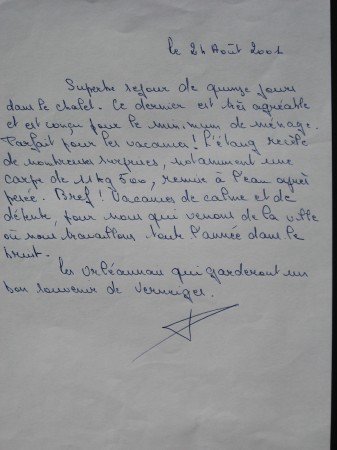 le 24 Août 2001
Superbe séjour de quinze jours
dans le chalet. Ce dernier est très agréable
et est conçu pour le minimum de ménage.
Parfait pour les vacances ! L'étang recèle
de nombreuses surprises, notamment une
carpe de 11 kg 500, remise à l'eau après
pesée. Bref ! Vacances de calme et de
détente, pour nous qui venons de la ville
où nous travaillons toute l'année dans le
bruit.
Les Orléannais qui garderont un
bon souvenir de Verneiges.